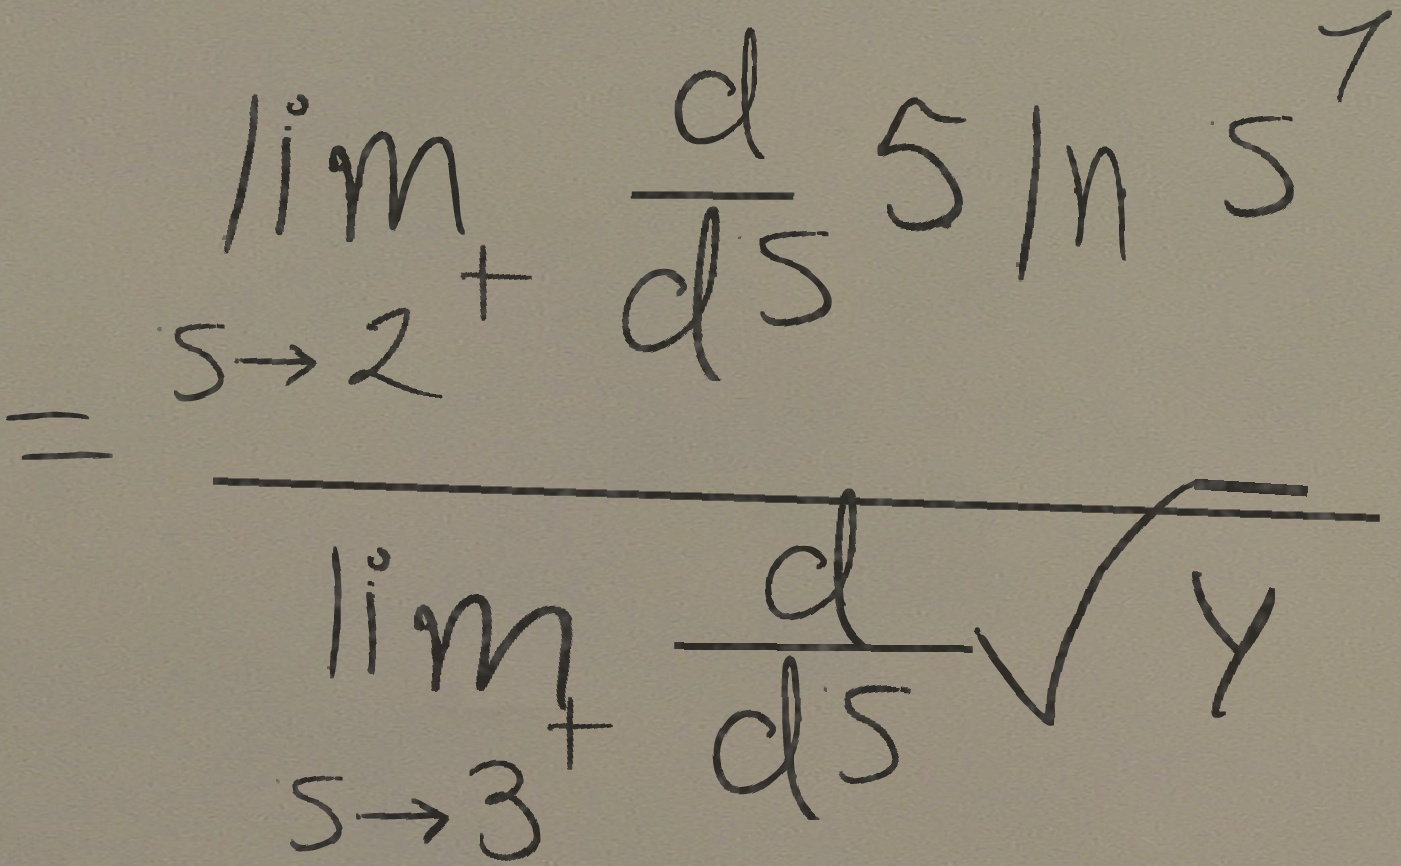 = \frac{\lim_{s \to 2^+} \frac{d}{ds} 5 \ln s^1}{\lim_{s \to 3^+} \frac{d}{ds} \sqrt{y}}